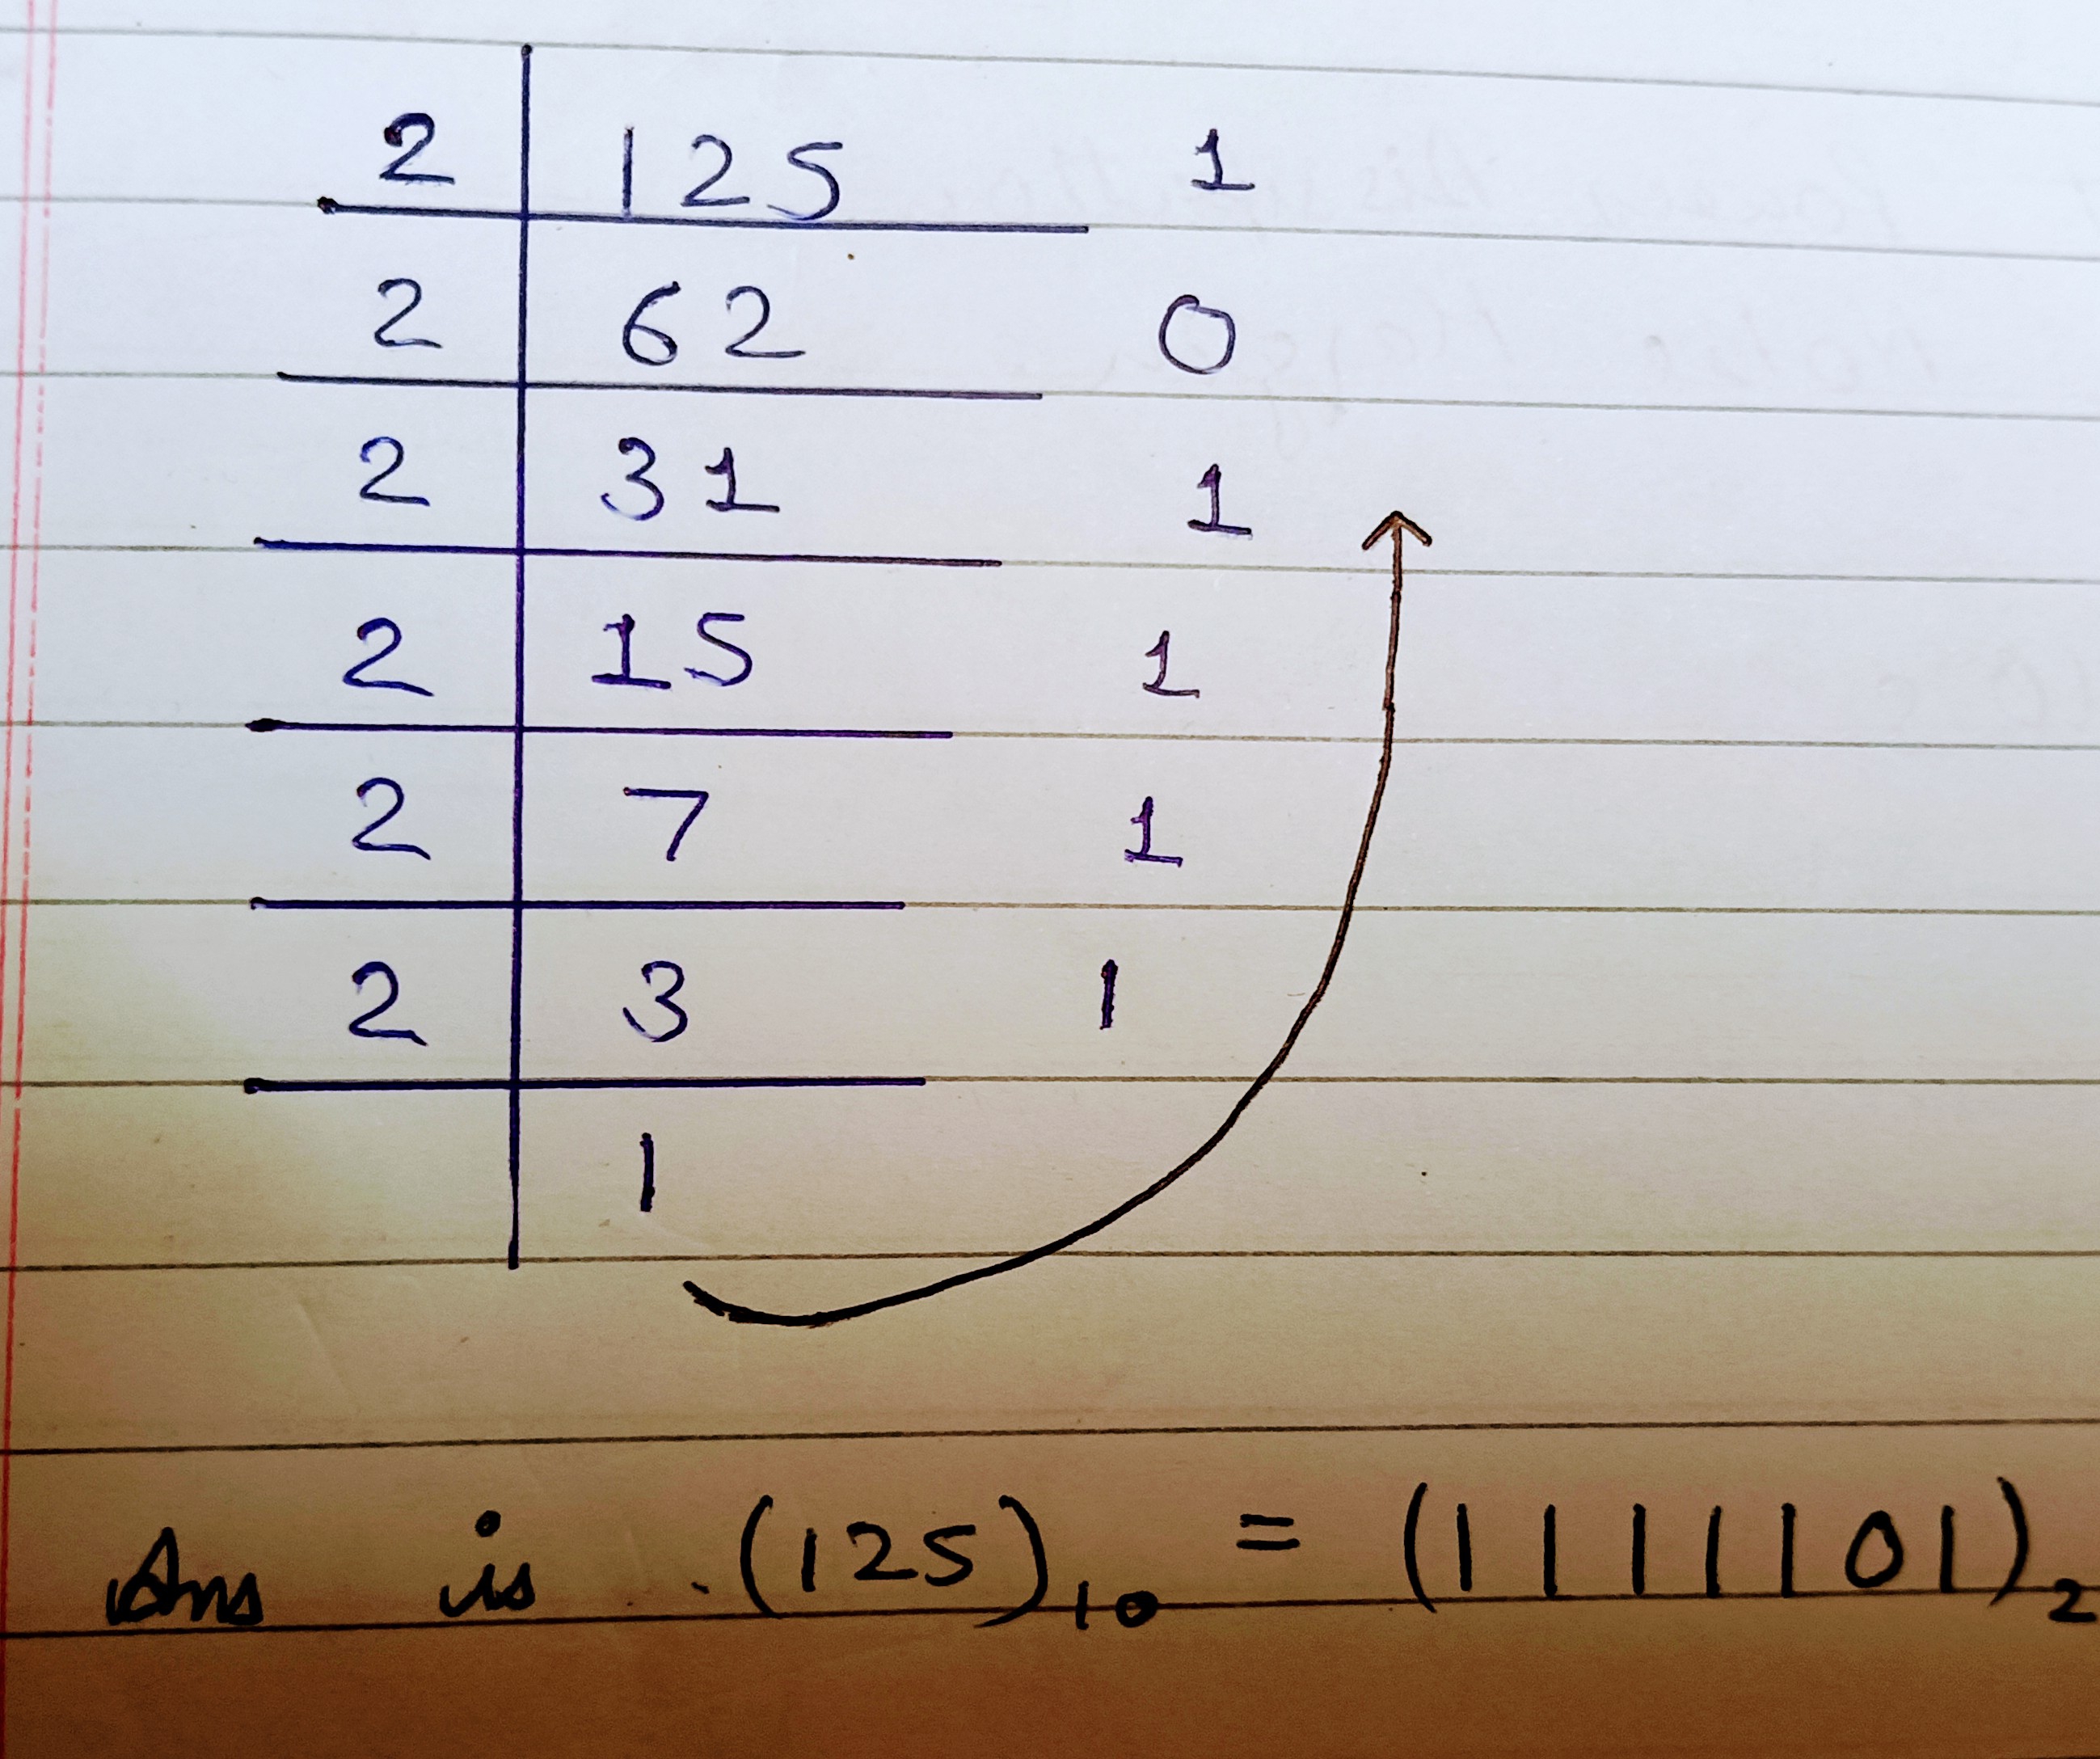 2 125 1
2 62 0
2 31 1
2 15 1
2 7 1
2 3 1
1
Ans is (125)₁₀ = (1111101)₂